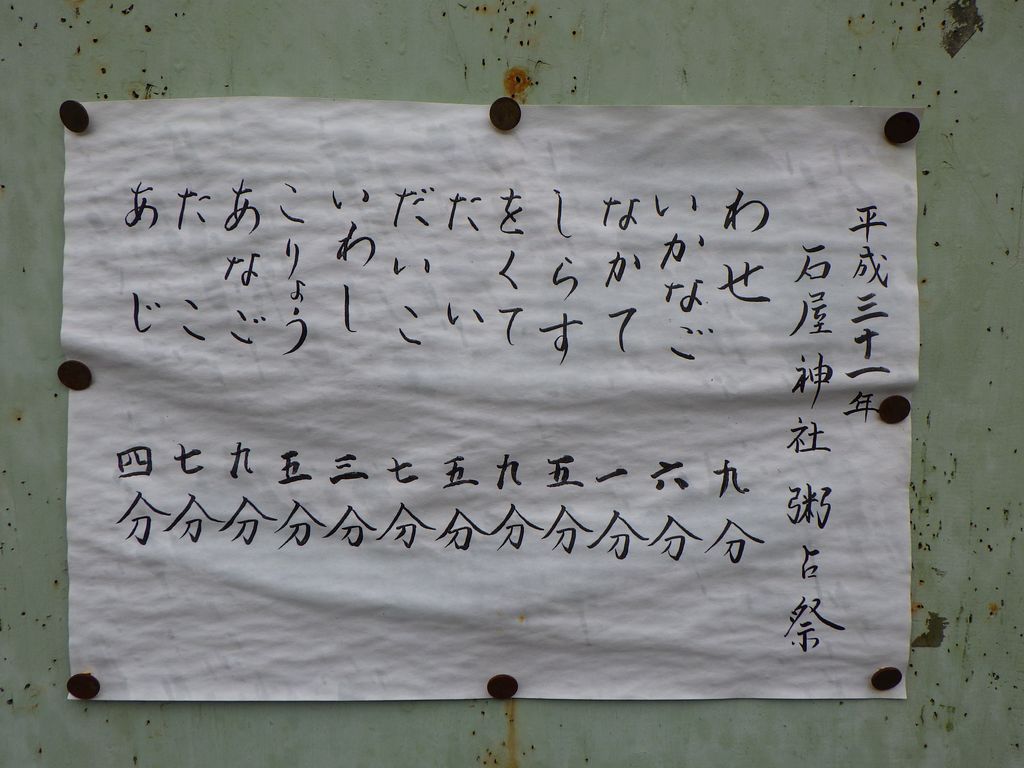 平成三十一年
石屋神社 粥占祭
わせ 九分
いかなご 六分
なかて 一分
しらす 五分
をくて 九分
たい 五分
だいこ 七分
いわし 三分
こりょう 五分
あなご 九分
たこ 七分
あじ 四分